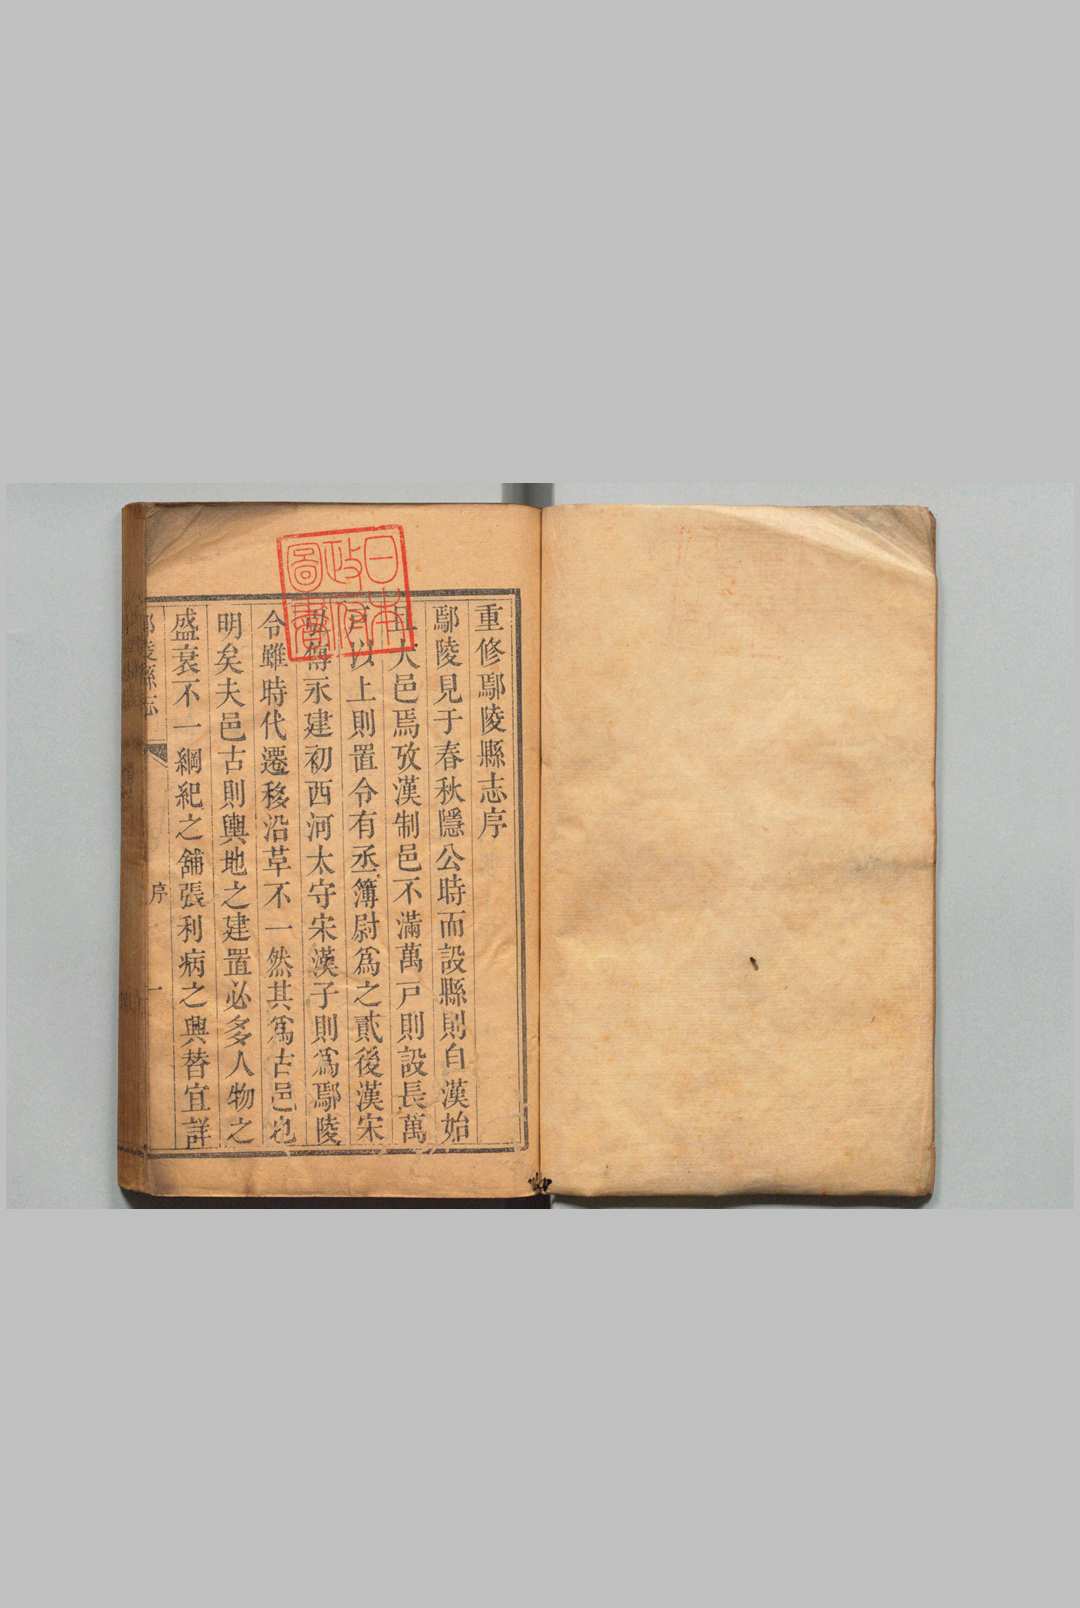 重修鄢陵縣志序
鄢陵見于春秋隱公時而設縣則自漢始
且大邑焉攷漢制邑不滿萬戸則設長萬
戸以上則置令有丞簿尉爲之貳後漢宋
傳永建初西河太守宋漢子則爲鄢陵
令雖時代遷移沿革不一然其爲古邑也
明矣夫邑古則輿地之建置必多人物之
盛衰不一綱紀之舖張利病之興替宜詳
鄢陵縣志
序
一
日本
政府
圖書